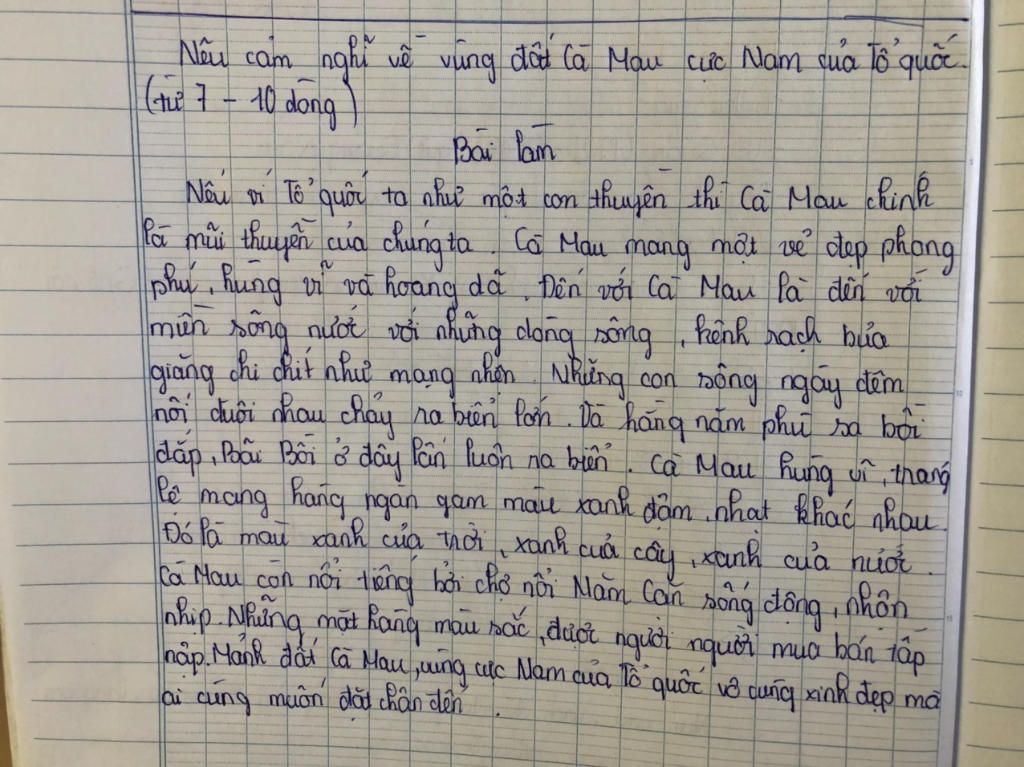 Nêu cảm nghĩ về vùng đất Cà Mau cực Nam của Tổ quốc.
(từ 7 - 10 dòng)
Bài làm
Nếu ví Tổ quốc ta như một con thuyền thì Cà Mau chính
là mũi thuyền của chúng ta. Cà Mau mang một vẻ đẹp phong
phú, hùng vĩ và hoang dã. Đến với Cà Mau là đến với
miền sông nước với những dòng sông, kênh rạch bủa
giăng chi chít như mạng nhện. Những con sông ngày đêm
nối đuôi nhau chảy ra biển lớn. Và hàng năm phù sa bồi
đắp, Bãi Bồi ở đây lấn luôn ra biển. Cà Mau hùng vĩ, tráng
lệ mang hàng ngàn gam màu xanh đậm, nhạt khác nhau.
Đó là màu xanh của trời, xanh của cây, xanh của nước.
Cà Mau còn nổi tiếng bởi chợ nổi Năm Căn sống động, nhộn
nhịp. Những mặt hàng màu sắc, được người người mua bán tấp
nập. Mảnh đất Cà Mau, vùng cực Nam của Tổ quốc vô cùng xinh đẹp mà
ai cũng muốn đặt chân đến.